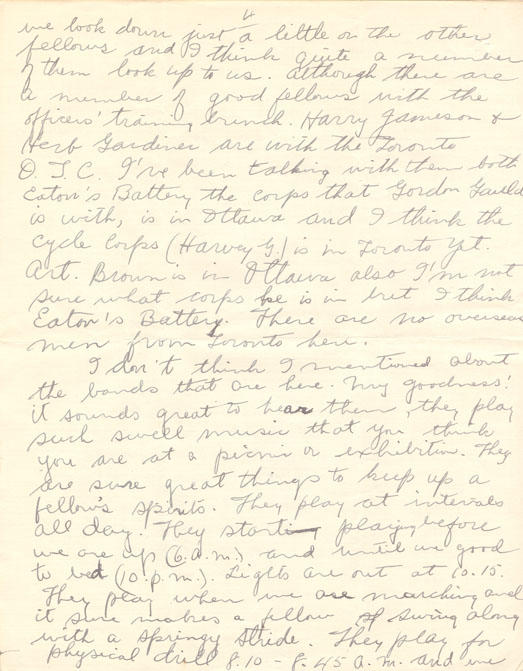 4
we look down just a little on the other
fellows and I think quite a number
of them look up to us. Although there are
a number of good fellows with the
officers' training bunch. Harry Jameson &
Herb Gardiner are with the Toronto
O.T.C. I've been talking with them both
Eaton's Battery the corps that Gordon
is with, is in Ottawa and I think the
Cycle Corps (Harvey G.) is in Toronto yet.
Art. Brown is in Ottawa also I'm not
sure what corps he is in but I think
Eaton's Battery. There are no overseas
men from Toronto here.
I don't think I mentioned about
the bands that are here. My goodness!
it sounds great to hear them, they play
such swell music that you think
you are at a picnic or exhibition. They
are sure great things to keep up a
fellow's spirits. They play at intervals
all day. They start playing before
we are up (6.a.m.) and until we good
to bed (10.p.m.). Lights are out at 10.15.
They play when we are marching and
it sure makes a fellow swing along
with a springy stride. They play for
physical drill 8.10 - 8.45 a.m and we